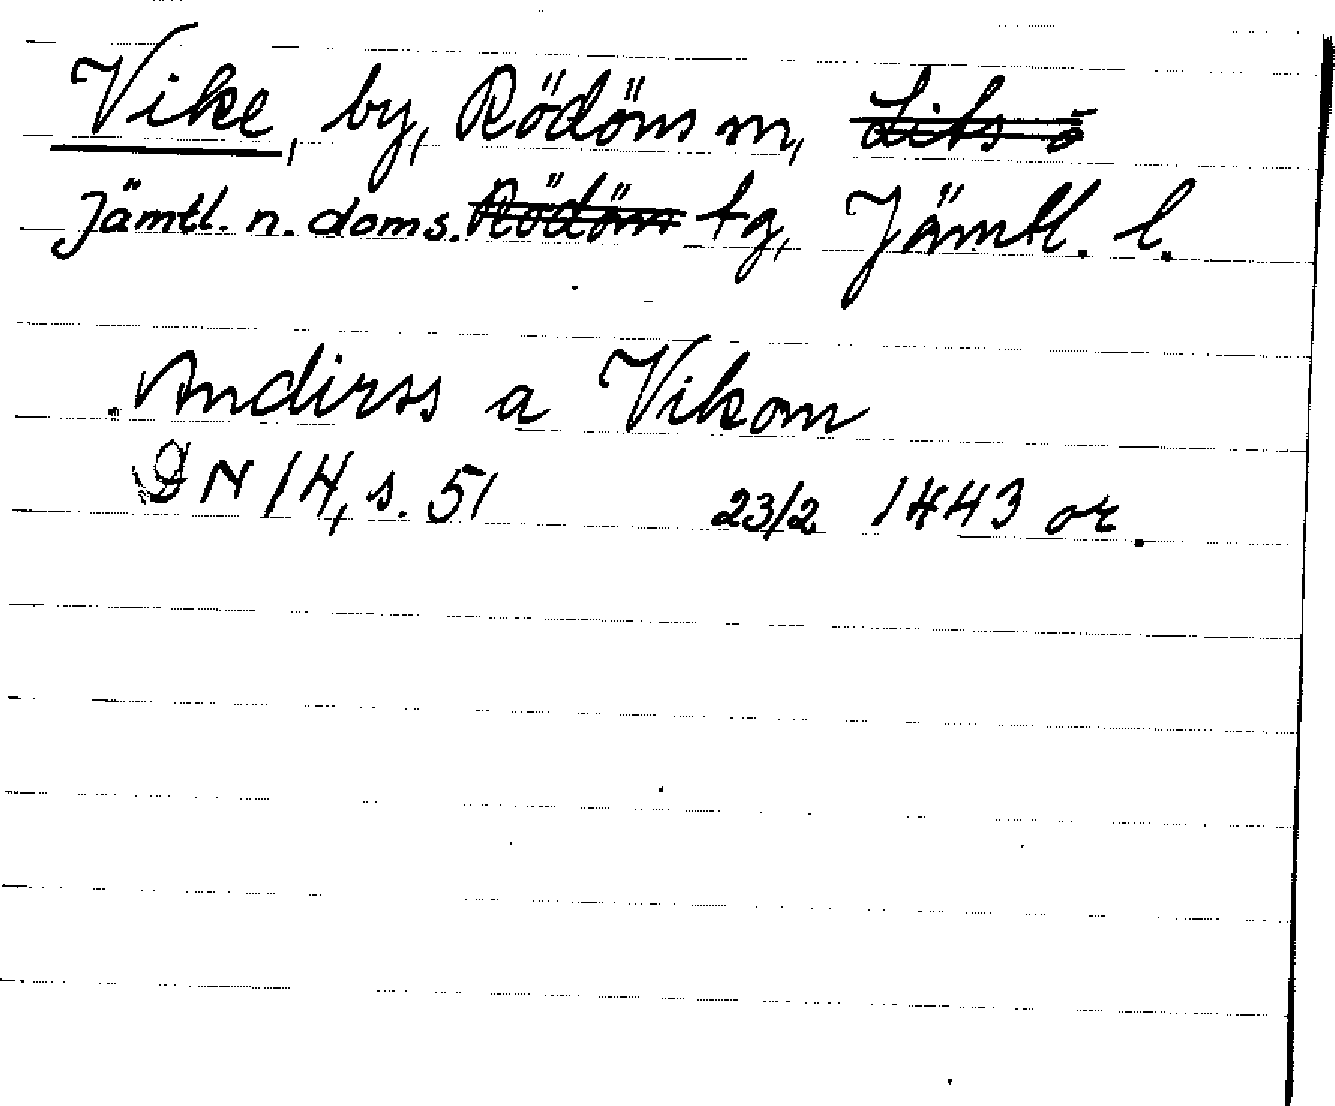 Vike, by, Rödöns sn, Lits o
Jämtl. n. doms. Rödöns tg, Jämtl. l.
Andirss a Vikom
DN 14, s. 51 23/2 1443 or.